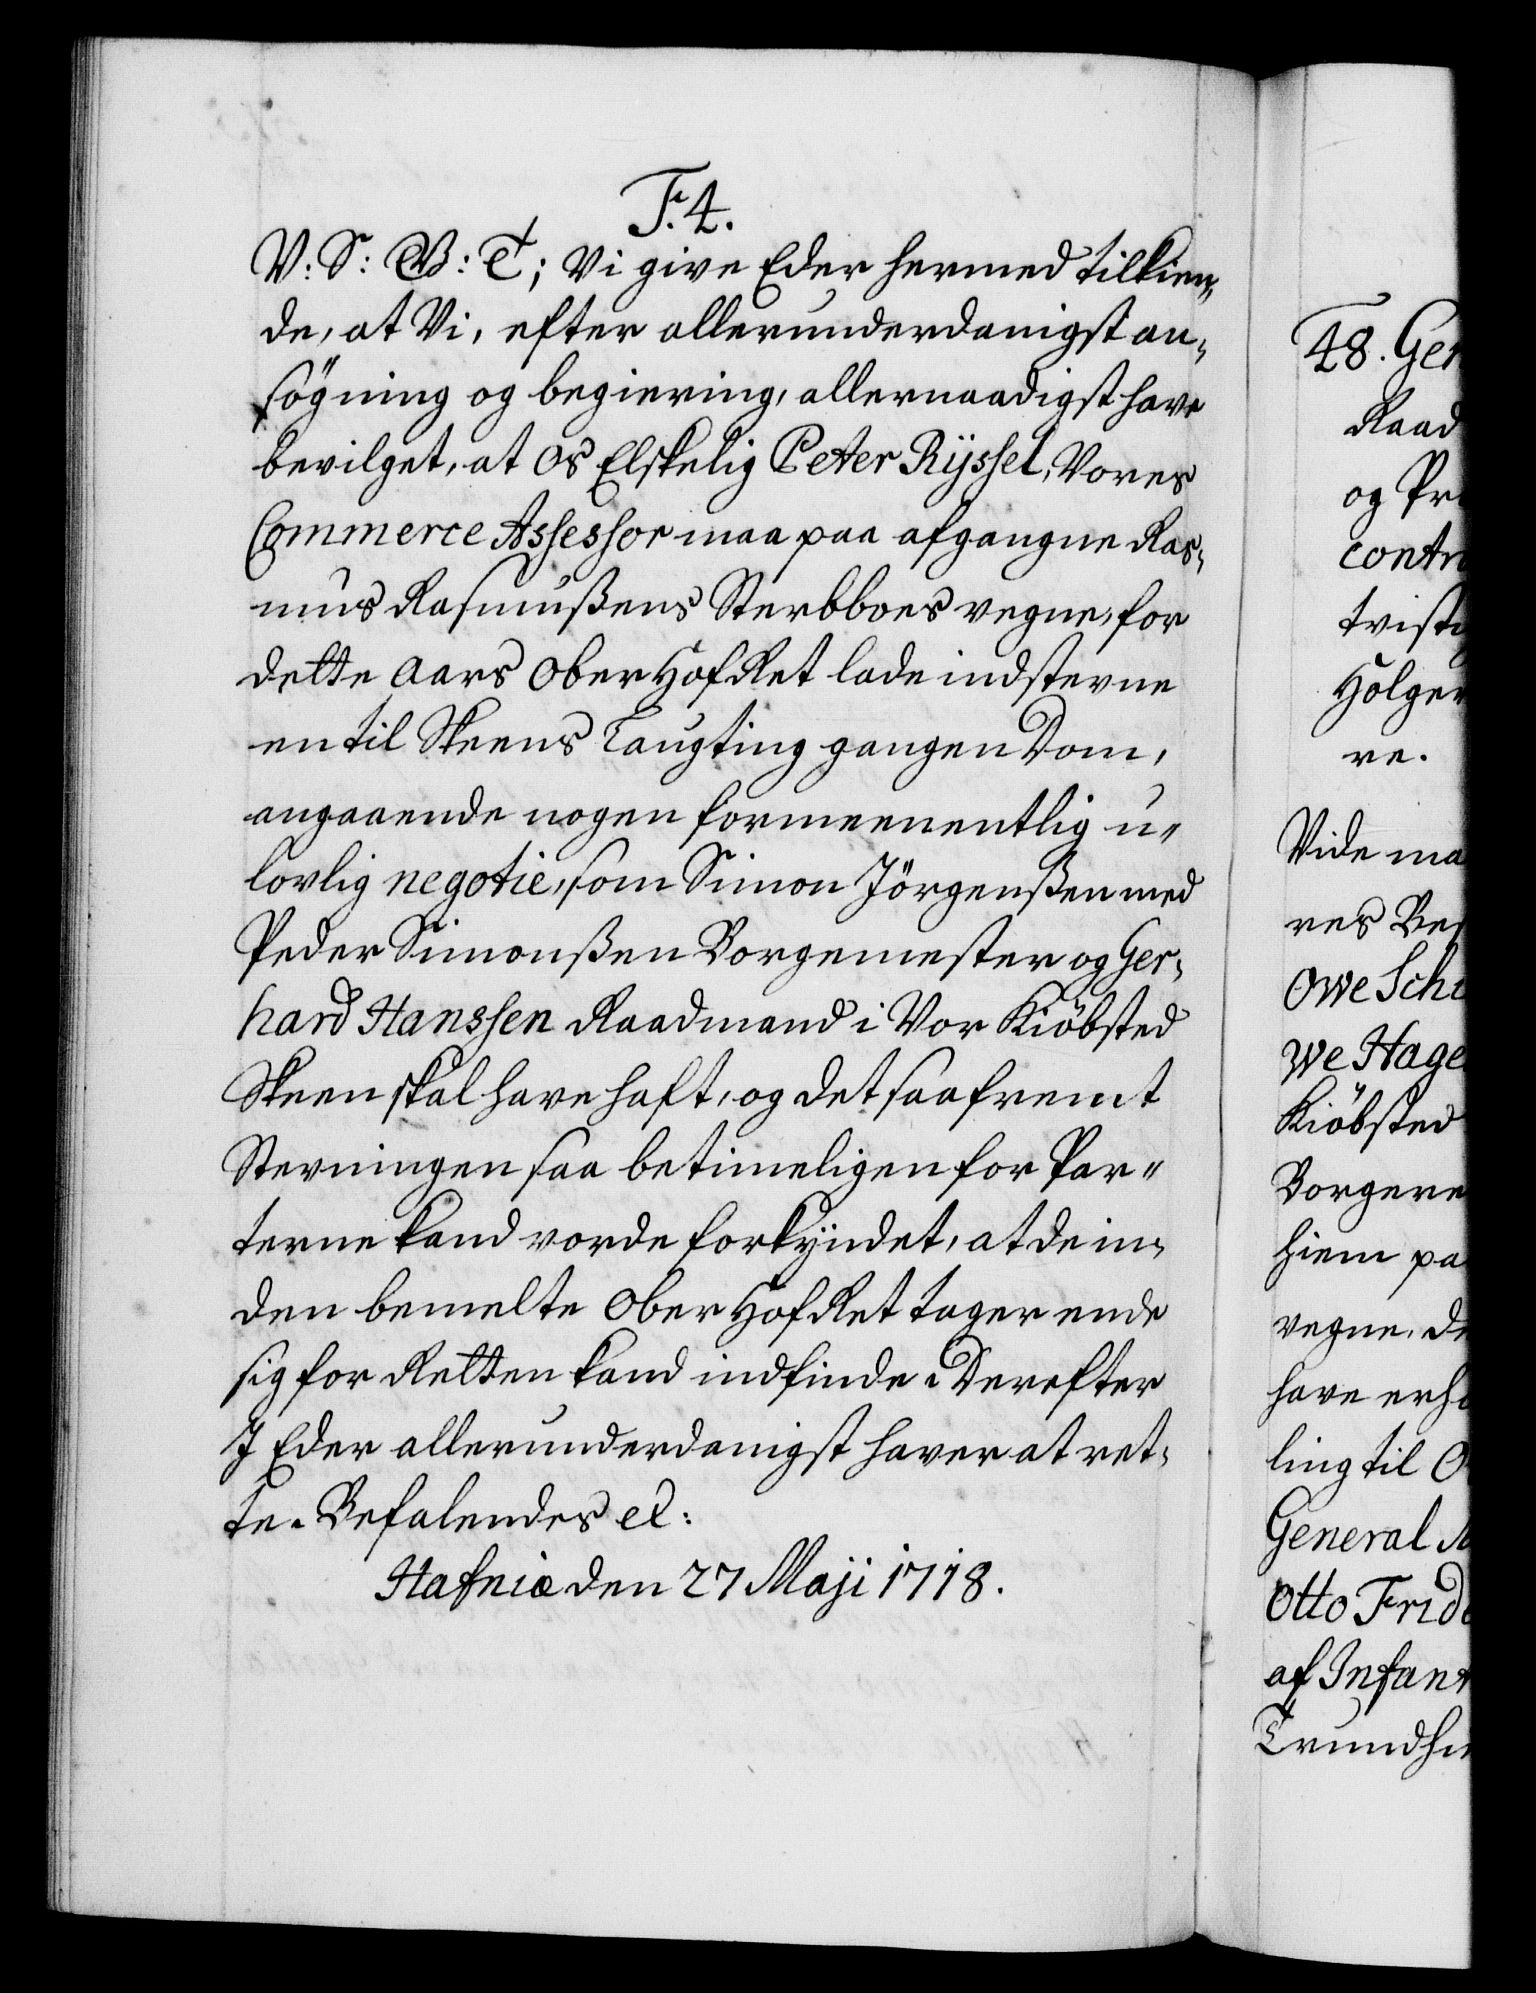 F. 4.
V: S: W: T; Vi give Eder hermed tilkien-
de, at Vi, efter allerunderdanigst an-
søgning og begiering, allernaadigst have
bevilget, at Os Elskelig Peter Rÿssel, Vores
Commerce Assessor maa paa afgangne Ras-
mus Rasmusßens Sterbboes vegne, for
dette Aars Ober Hof Ret lade indstevne
en til Skeens Laugting gangen Dom,
angaaende nogen formeenentlig u-
lovlig negotie, som Simon Jörgensßen med
Peder Simonsßen Borgemester og Ger-
hard Hanssen Raadmand i Vor Kiöbsted
Skeen skal have haft, og det saafremt
Stevningen saa betimeligen for Par-
terne kand vorde forkÿndet, at de in-
den bemelte Ober Hof Ret tager ende
sig for Retten kand indfinde. Derefter
I Eder allerunderdanigst haver at ret-
te. Befalendes etc:
Hafniæ den 27 Maji 1718.
48. Ger
Raad
og Pr
contra
tvisti
Holger
re.
Vide ma
res Be
Owe Sch
we Hage
Kiöbsted
Borgere
hiem pa
vegne, de
have erho
ling til O
General M
Otto Frid
af Infant
Trundhi